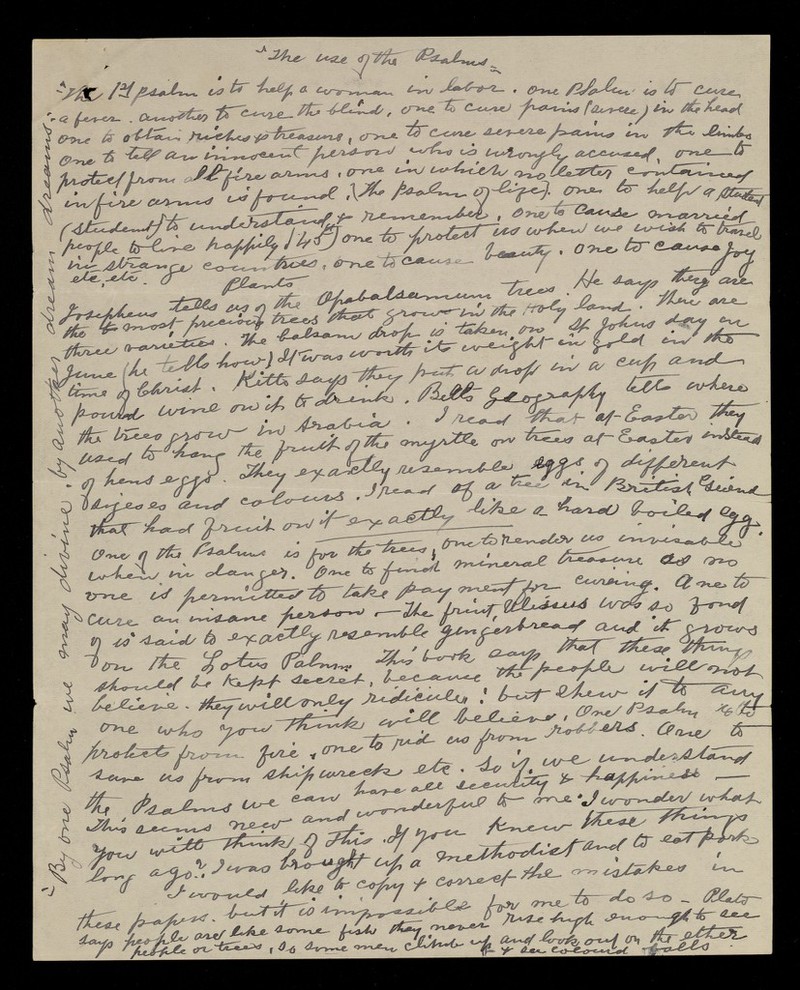 "The use of the Psalms"
"The 1st psalm is to help a woman in labor. one Psalm is to cure
a fever. another to cure the blind, one to cure pains (severe) in the head
one to obtain riches & treasure, one to cure severe pains in the limbs
one to tell an innocent person who is wrongly accused, one to
protect from all fire arms, one in which no letter contained
in fire arms is found, (The Psalm of life), one to help a
(student) to understand & remember, one to cause married
people to live happily (45th) one to protect us when we wish to travel
in strange countries, one to cause beauty. one to cause joy
etc, etc. Plants
Josephus tells us of the Opabalsamum trees. He says they are
the most precious trees that grow in the Holy land. There are
three varieties. The balsam drop is taken on St Johns day in
June (he tells how) It was worth its weight in gold in the
time of Christ. Kitto says they put a drop in a cup and
pourd wine on it to drink. Bells Geography tells where
the trees grow in Arabia. I read that at Easter they
used to hang the fruit of the myrtle on trees at Easter instead
of hens eggs. They exactly resemble eggs of different
sizeses and colours. I read of a tree in British
that had fruit on it exactly like a hard boiled egg.
One of the Psalms is for the trees, one to render us invisable
when in danger. One to find mineral treasure as no
one is permitted to take payment for cureing. A ne to
cure an insane person - The fruit, Ulissus was so fond
of is said to exactly resemble gingerbread and it grows
on the Lotus Palm. This book says that these things
should be kept secret, because the people will not
believe. they will only ridicule! but shew it to any
one who you think will believe, One Psalm
protects from fire, one to rid us from robbers. One to
save us from shipwreck etc. So if we understand
the Psalms we can have all security & happiness -
This seems new and wonderful to me. I wonder what
you will think of this. If you knew these things
long ago? I was brought up a methodist and to eat pork
I would like to copy & correct the mistakes in
these papers. but it is impossible for me to do so - Plato
says people are like some fish they never rise high enough to see
people or trees, so some men climb up and look out on the ether
& see colourd balls
"By one Psalm we may divine, by another dream dreams."